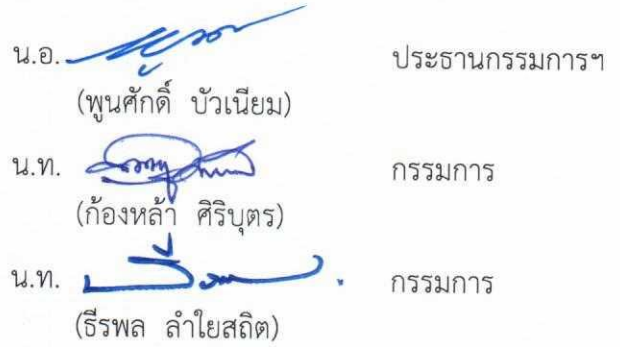 น.อ. ประธานกรรมการฯ
(พูนศักดิ์ บัวเนียม)
น.ท. กรรมการ
(ก้องหล้า ศิริบุตร)
น.ท. กรรมการ
(ธีรพล ลำใยสถิต)